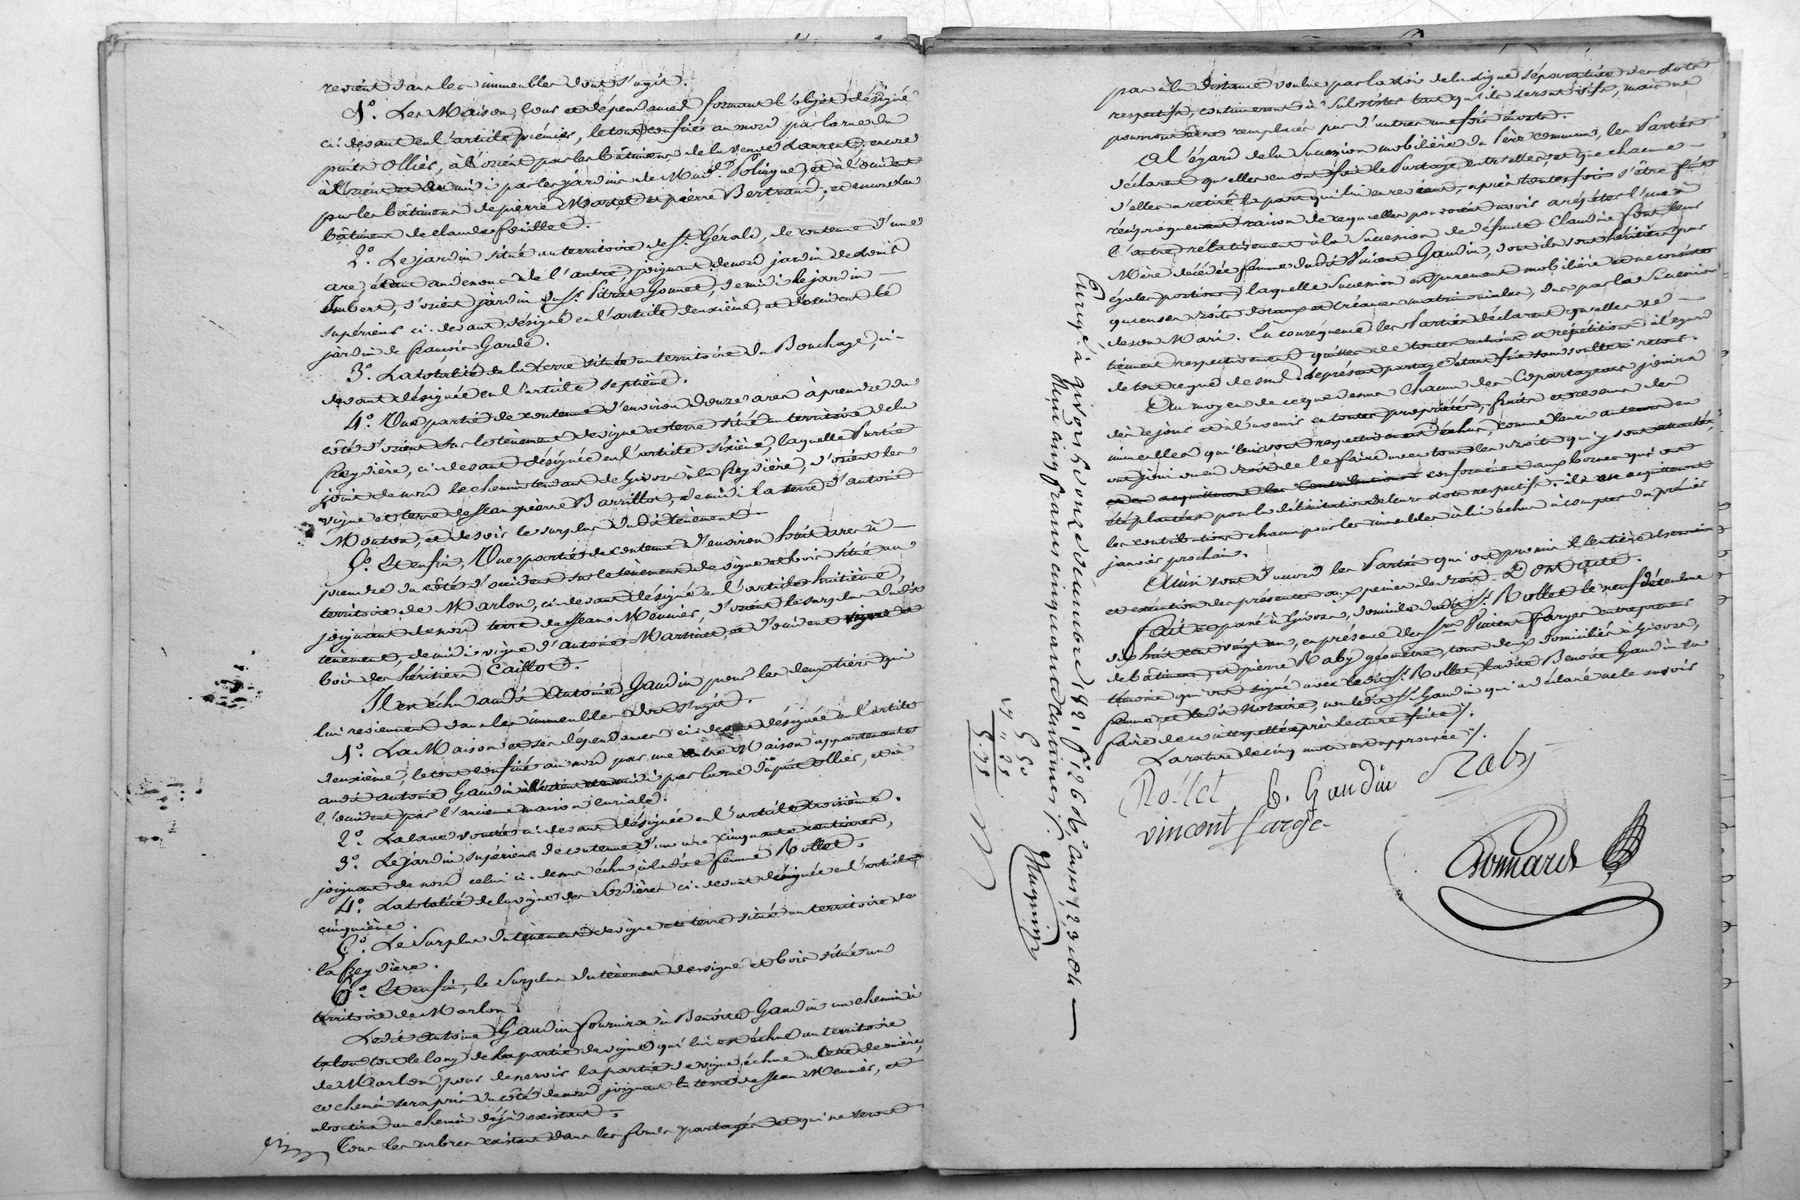 revient dans les immeubles dont s'agit.
1º. Les Maison, cour et dépendances formant l'objet désigné
ci-devant en l'article premier, le tout confiné au nord par la rue du
puits Ollier, à l'orient par les bâtiments de la veuve Laurent, encore
à l'orient et de midi par les jardins de Mad.e Polingue, et à l'occident
par les bâtiments de pierre Martel et pierre Bertrand, et encore les
bâtiment de claude feuillet.
2º. Le jardin situé au territoire de St. Gérald, de contenue d'une
are, étant au dessous de l'autre, joignant de nord jardin de
Imbert, d'orient jardin du Sr. Pitrat Gonnet, de midi le jardin
supérieur ci-devant désigné en l'article deuxième, et d'occident le
jardin de françois Garde.
3º. La totalité de la terre située au territoire du Bouchage, ci-
devant désignée en l'article septième.
4º. Une partie de contenue d'environ douze ares à prendre du
côté d'orient sur le tènement de vigne et terre situé au territoire de la
freydière, ci-devant désignée en l'article sixième, laquelle Partie
joint de nord le chemin tendant de Givors à la freydière, d'orient les
vigne et terre de Jean pierre Barrillot, de midi la terre d'antoine
Mouton, et de soir le surplus dudit tènement.
5º. Et enfin, Une partie de contenue d'environ huit ares à
prendre du côté d'occident sur le tènement de vigne et bois situé au
territoire de Marlon, ci-devant désigné en l'article huitième,
joignant de nord terre de Jean Meunier, d'orient le surplus dudit
tènement, de midi vigne d'antoine Martinet, et d'occident vigne et
bois des héritiers Caillot.
Il est échu audit Antoine Gaudin pour les deux tiers qui
lui reviennent dans les immeubles dont s'agit.
1º. La Maison et ses dépendances ci-devant désignée en l'article
deuxième, le tout confiné au nord par une autre Maison appartenante
audit antoine Gaudin par la rue du puit ollier, et à
l'occident par l'ancienne maison curiale.
2º. La cave voutée ci-devant désignée en l'article troisième.
3º. Le jardin supérieur de contenue d'une are cinquante centiares,
joignant de nord celui ci-dessus échu à ladite femme Rollet.
4º. La totalité de la vigne des ci-devant désignée en l'article
cinquième.
5º. Le Surplus du tènement de vigne et terre situé au territoire de
la freydière.
6º. Et enfin, le Surplus du tènement de vigne et bois situé au
territoire de Marlon.
Ledit Antoine Gaudin fournira à Benoite Gaudin un chemin à
talon tout le long de la partie de vigne qui lui est échue au territoire
de Marlon, pour desservir la partie de vigne échue à cette dernière,
ce chemin sera pris du côté de nord joignant la terre de Jean Meunier, et
aboutira au chemin déjà existant.
Tous les arbres existant dans les fonds partagés et qui ne seront
pas à la distance voulue par la loi de la ligne séparative des lots
respectifs, continueront à subsister tant qu'ils seront vifs, mais ne
pourront être remplacés par d'autres une fois à cote.
A l'égard de la Succession mobilière du Père commun, les Parties
déclarent qu'elles en ont fait le Partage entr'elles, et que chacune
d'elles a retiré la part qui lui en revient, après toutefois s'être fait
réciproquement raison de ce qu'elles pouvoient avoir à répéter l'une à
l'autre relativement à la Succession de défunte Claudine font leur
Mère décédée femme dudit Vincent Gaudin, dont ils sont héritiers par
égales portions, laquelle Succession est purement mobilière et ne consiste
qu'en ses droits dotaux et créances matrimoniales, dus par la Succession
de son Mari. En conséquence les Parties déclarent qu'elles se
tiennent respectivement quittes de toutes actions et répétitions à l'égard
de tout ce que dessus. Le présent partage étant fait sans soulte ni retour.
Au moyen de ce que dessus chacun des Copartageans jouira
dès ce jour et à l'avenir en toutes propriétés, fruits et revenus des
immeubles qui leur sont respectivement échus, comme leurs auteurs en
ont joui ou eu droit de le faire avec tous les droits qui y sont attachés,
et en acquittant les Contributions conformément aux bornes qui ont
été plantées pour la délimitation de leurs lots respectifs. ils en acquitteront
les contributions chacun pour les immeubles à lui échus à compter du premier
janvier prochain.
Ainsi sont d'accord les Parties qui ont promis l'entière observation
et exécution des présentes aux peines de droit. Dont acte.
Fait et passé à Givors, domicile dudit Sr. Rollet le neuf décembre
dix huit cent vingt un, en présence des Srs. Vincent Farge entrepreneur
de bâtimens, et pierre Raby géomètre, tous deux domiciliés à Givors,
témoins qui ont signé avec ledit Sr. Rollet, ladite Benoite Gaudin sa
femme, et ledit Notaire, non ledit Sr. Gaudin qui a déclaré ne le savoir
faire de ce interpellé après lecture faite.
La rature de cinq mots est approuvée.
Rollet B. Gaudin Raby
vincent farge
Enrg.é à givors le onze décembre 1821 fº 126 Rº, cases 1, 2, 3 et 4
Reçu cinq francs cinquante centimes.
5 50
5